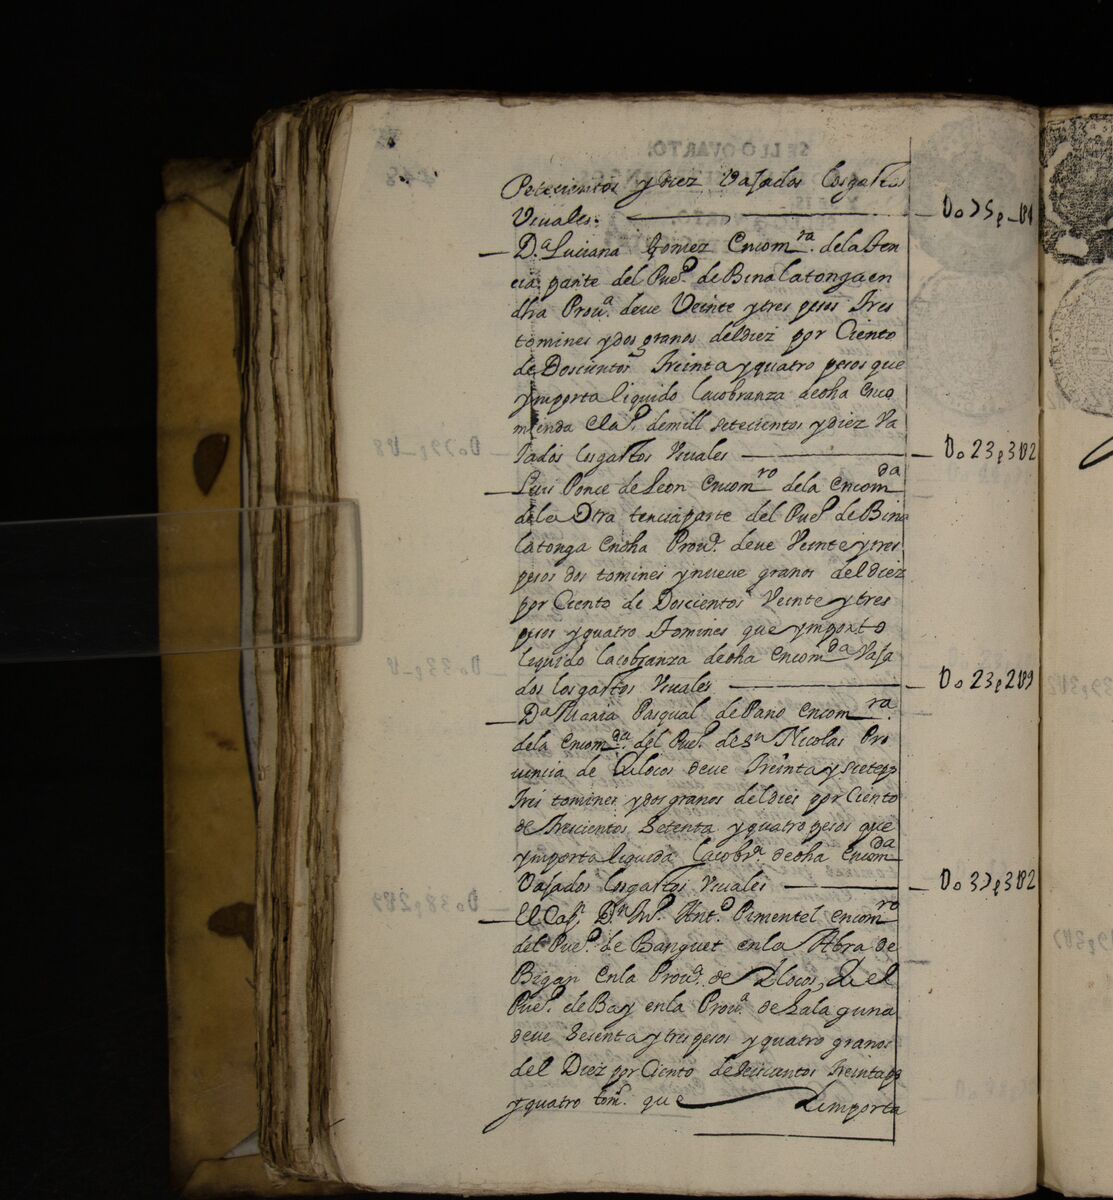 Setecientos y diez Vajados los gastos
Vsuales. — U o 75 p —
— D.ª Luciana Gomez Encom.ra de la ter
cia parte del Pue.º de Binalatonga en
dha Prou.ª deue Veinte y tres pesos tres
tomines y dos granos del diez por Ciento
de Doscientos treinta y quatro pesos que
ymporta liquido la cobranza de dha enco
mienda el a.º de mill setecientos y diez Va
jados los gastos Vsuales — U o 23 p 3 U 2
— Luis Ponce de Leon encom.ro de la encom.da
de la Otra tercia parte del Pue.º de Bina
latonga en dha Prou.ª deue Veinte y tres
pesos dos tomines y nueue granos del diez
por Ciento de Doscientos Veinte y tres
pesos y quatro tomines que ymporto
liquido la cobranza de dha encom.da Vaja
dos los gastos Vsuales — U o 23 p 2 U 9
— D.ª Maria Pasqual de Pano encom.ra
de la encom.da del Pue.º de S.n Nicolas Pro
uincia de Ylocos deue treinta y siete p.s
tres tomines y dos granos del dies por Ciento
de trescientos Setenta y quatro pesos que
ymporta liquida la cobr.ª de dha encom.da
Vajados los gastos Vsuales — U o 37 p 3 U 2
— El Cap.n D.n Ant.º Pimentel encom.ro
del Pue.º de Banguet en la Abra de
Bigan en la Prou.ª de Ylocos, y el
Pue.º de Bay en la Prou.ª de La laguna
deue Sesenta y tres pesos y quatro granos
del Diez por Ciento de Seiscientos treinta p.s
y quatro tom.s que ymporta